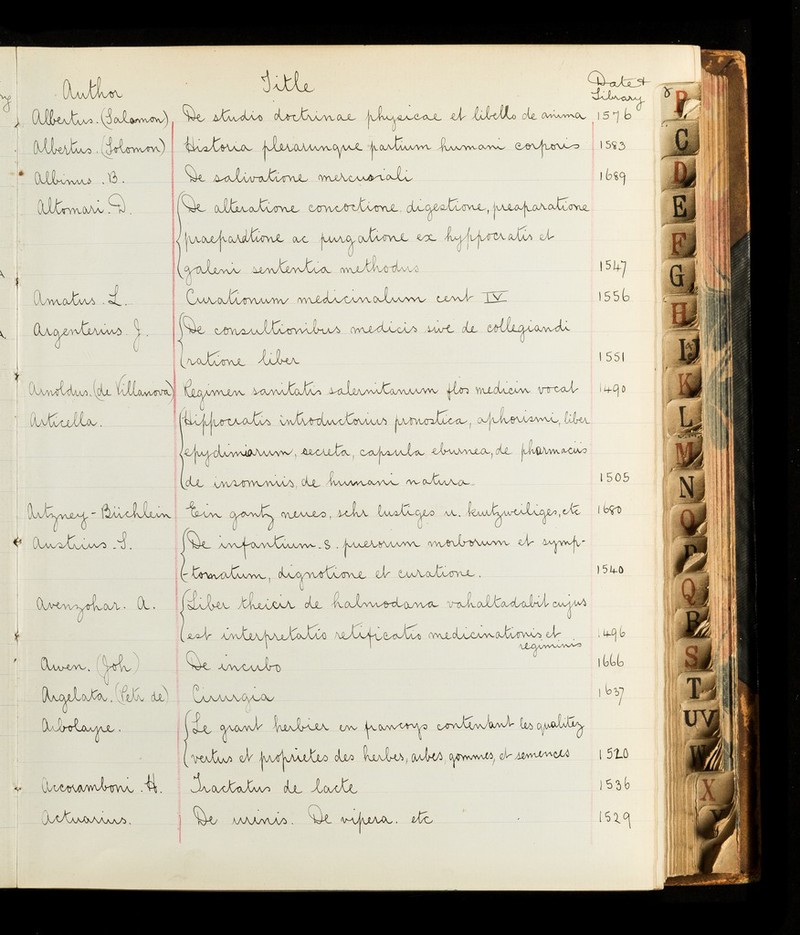 Author Title Date &
Library
Albertus. (Salamon) De studio doctrinae physicae et libello de anima 1576
Albertus. (Solomon) Historia plerarumque partium humani corporis 1583
Albinus. B. De salivatione mercuriali 1689
Altomari. D. De alteratione concoctione, digestione, preaparatione
praeparatione ac purgatione ex hyppocratis et
galeni sententia methodus 1547
Amatus. L. Curationum medicinalum cent IV 1556
Argenterius. J. De consultionibus medicis sive de collegiandi
ratione liber 1551
Arnoldus. (de Villanova) Regimen sanitatis salernitanum flos medicin vocat 1490
Articella. Hippocratis introductorius pronostica, aphorismi, liber
epydimiarum, secreta, capsula eburnea, de pharmaciis
de insomniis, de humani natura. 1505
Artzney-Büchlein Ein gantz neues, sehr lustiges u. kurtzweiliges, etc 1680
Austrius. S. De infantium. S. puerorum morborum et symp-
-tomatum, dignotione et curatione. 1540
Avenzohar. A. Liber theicir de halmodana vahaltadabit cujus
est interpretatio retificatio medicinationis et
regiminis 1496
Awen. (Joh) De incubo 1666
Argelata. (Petr de) Cirurgia 1637
Arbolayre. Le grant herbier en francoys contentant les qualitez
vertus et proprietes des herbes, arbes, gommes, et semences 1520
Accoramboni. H. Tractatus de lacte 1536
Actuarius. De urinis. De vipera. etc 1529
P
C
D
E
F
G
H
IJ
K
L
M
N
O
P
Q
R
S
T
UV
W
X